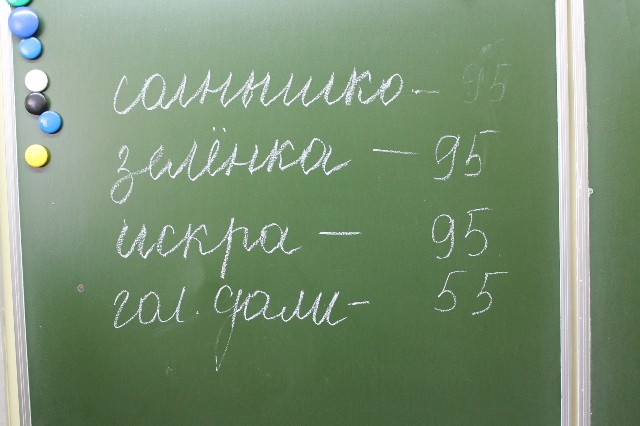 солнышко - 95
зелёнка - 95
искра - 95
гол. дали - 55